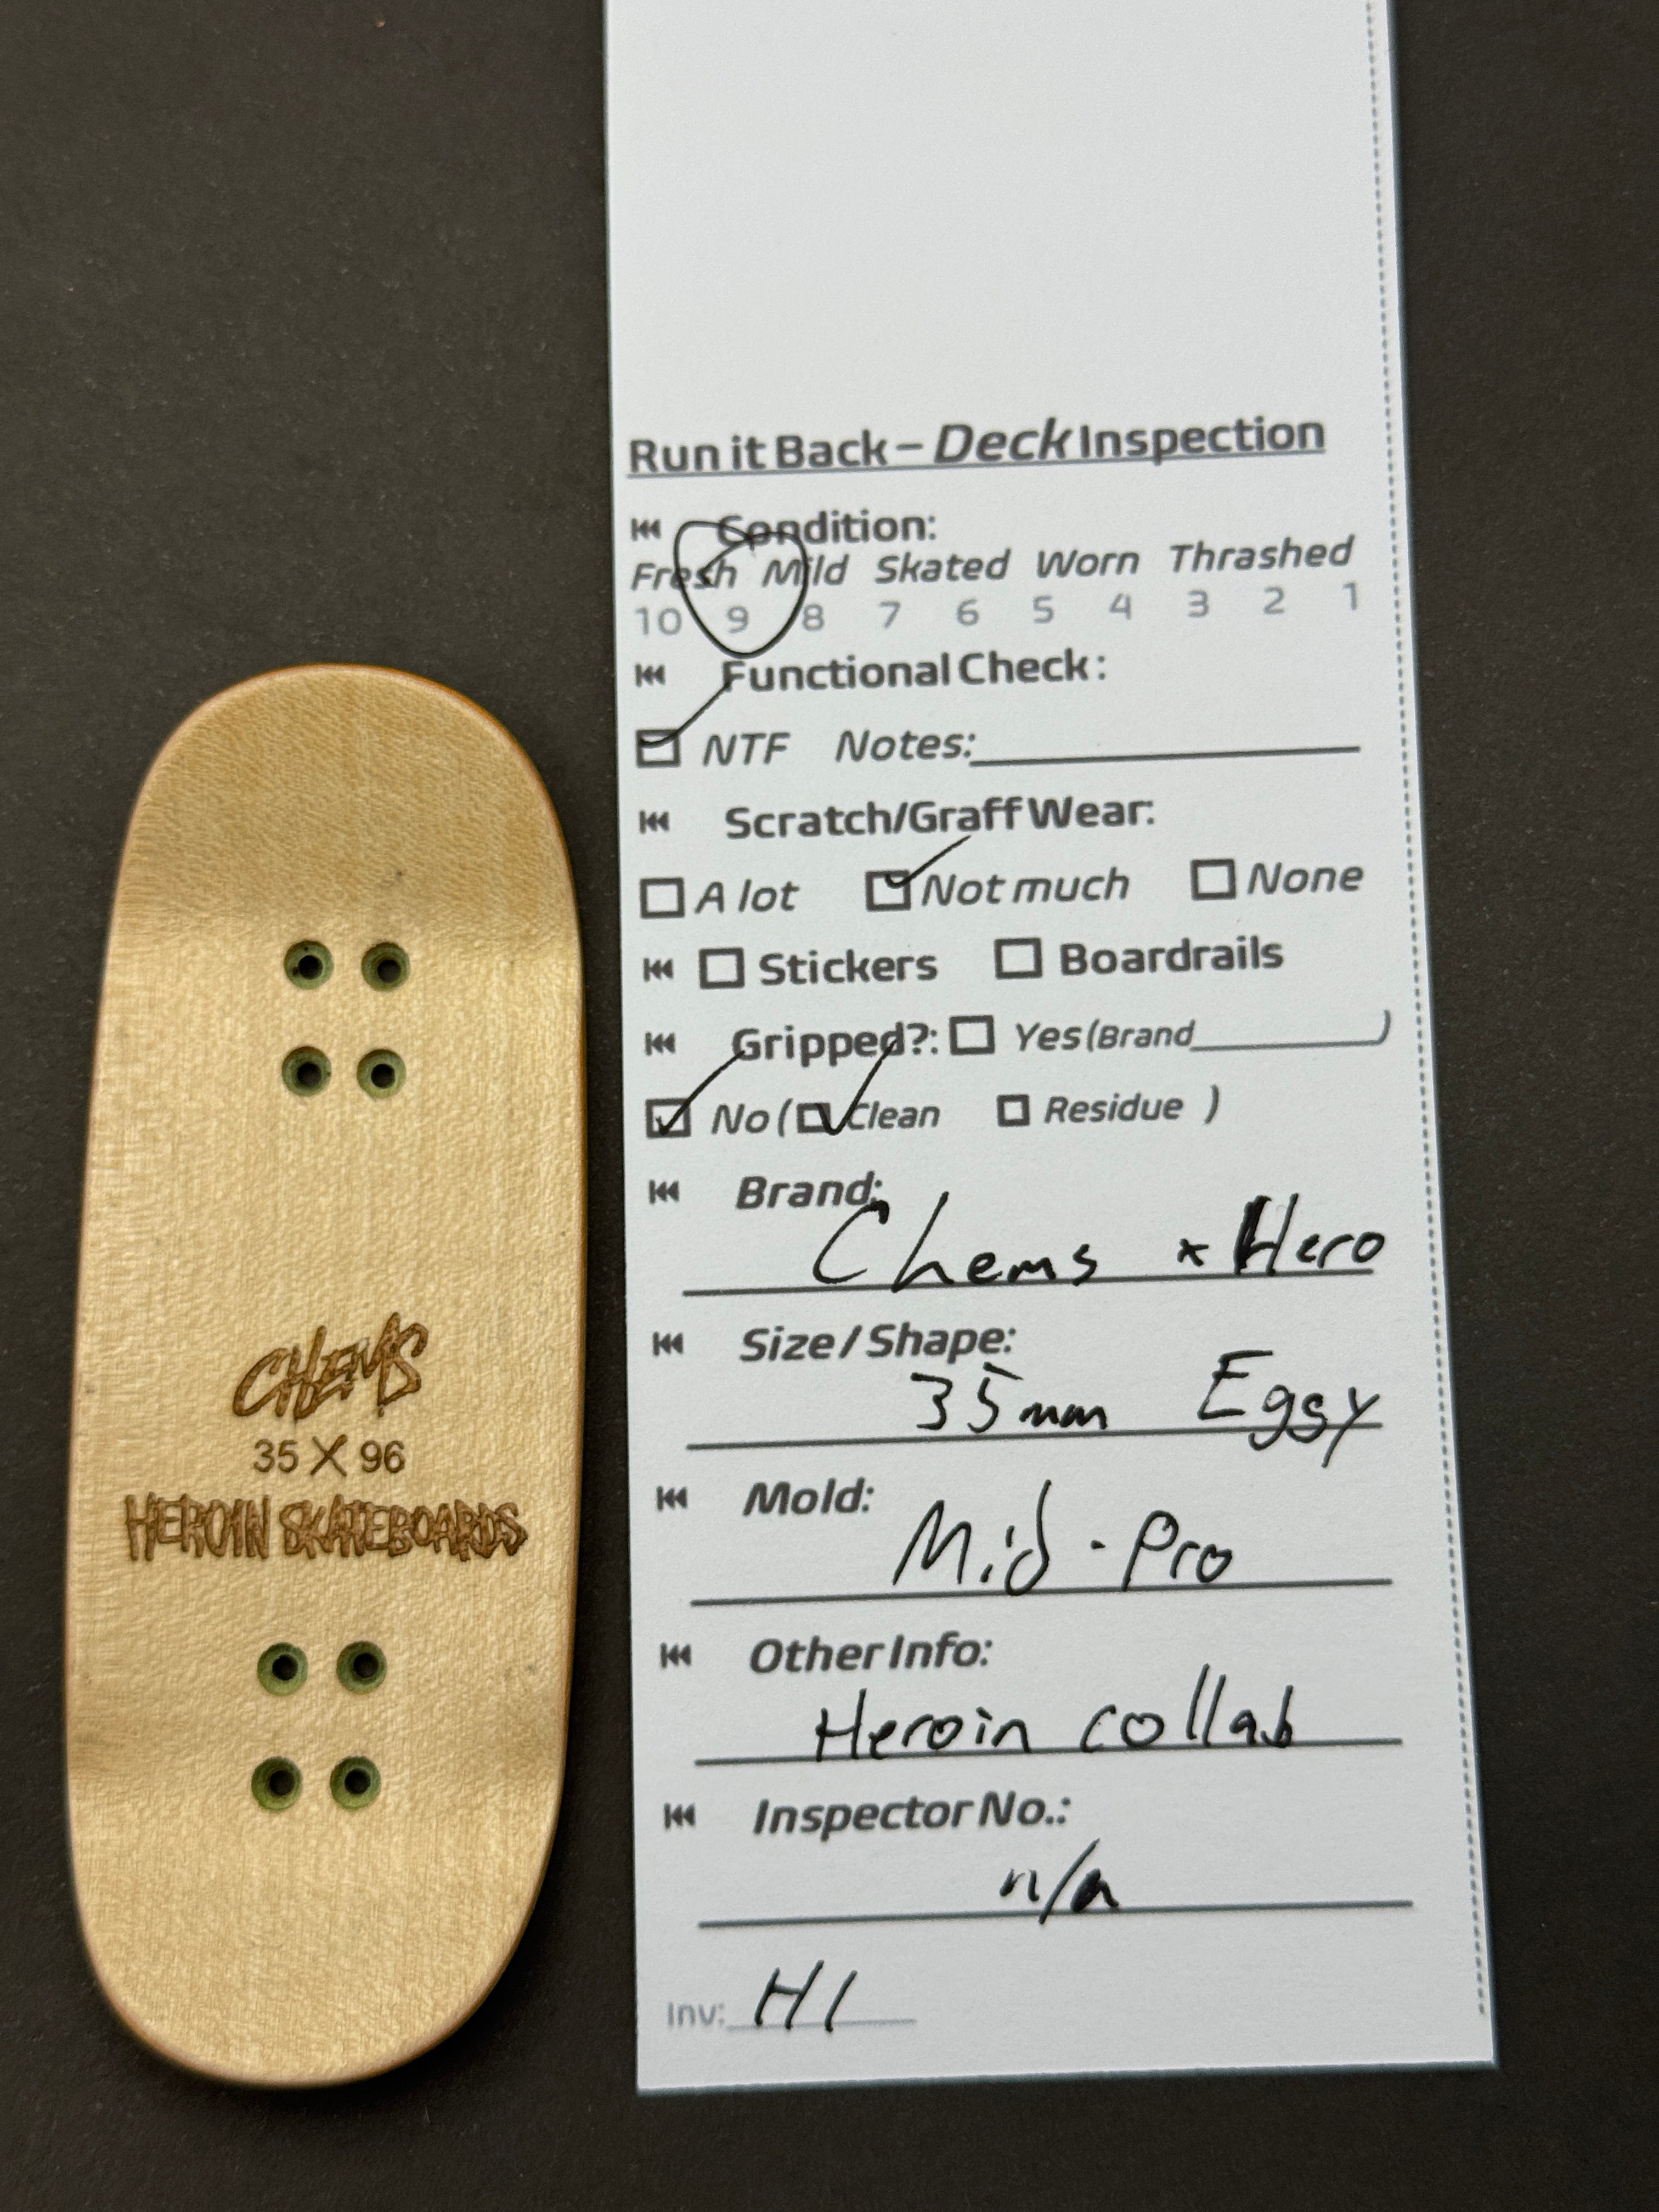 CHEMS
35 X 96
HEROIN SKATEBOARDS
Run it Back – Deck Inspection
Condition:
Fresh Mild Skated Worn Thrashed
10 9 8 7 6 5 4 3 2 1
Functional Check:
NTF Notes:
Scratch/Graff Wear:
A lot Not much None
Stickers Boardrails
Gripped?: Yes (Brand )
No ( Clean Residue )
Brand:
Chems x Hero
Size / Shape:
35mm Eggy
Mold:
Mid-Pro
Other Info:
Heroin collab
Inspector No.:
n/a
Inv: H1